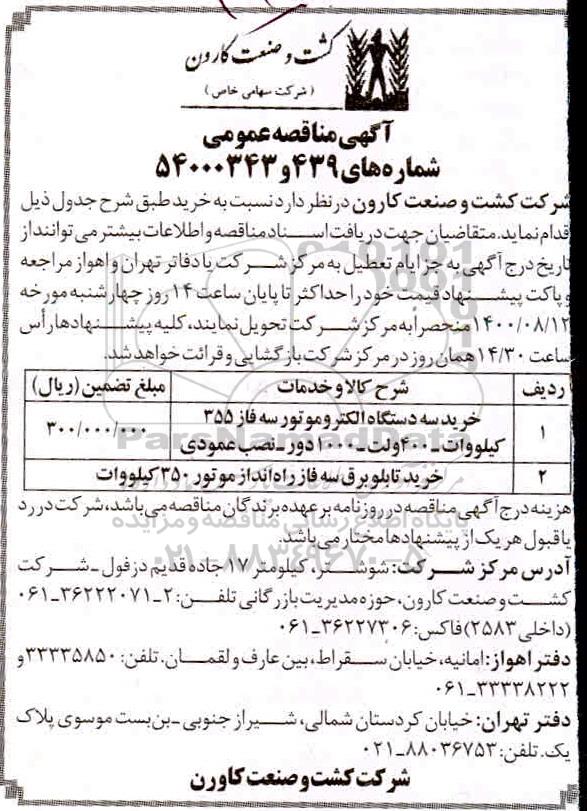 کشت و صنعت کارون
( شرکت سهامی خاص )
آگهی مناقصه عمومی
شماره‌های ۴۳۹ و ۵۴۰۰۰۳۴۳
شرکت کشت و صنعت کارون در نظر دارد نسبت به خرید طبق شرح جدول ذیل
اقدام نماید. متقاضیان جهت دریافت اسناد مناقصه و اطلاعات بیشتر می توانند از
تاریخ درج آگهی به جز ایام تعطیل به مرکز شرکت یا دفاتر تهران و اهواز مراجعه
و پاکت پیشنهاد قیمت خود را حداکثر تا پایان ساعت ۱۴ روز چهارشنبه مورخه
۱۴۰۰/۰۸/۱۲ منحصراً به مرکز شرکت تحویل نمایند، کلیه پیشنهادها رأس
ساعت ۱۴/۳۰ همان روز در مرکز شرکت بازگشایی و قرائت خواهد شد.
ردیف شرح کالا و خدمات مبلغ تضمین (ریال)
۱ خرید سه دستگاه الکتروموتور سه فاز ۳۵۵
کیلووات ـ ۴۰۰ ولت ـ ۱۰۰۰ دور ـ نصب عمودی ۳۰۰/۰۰۰/۰۰۰
۲ خرید تابلو برق سه فاز راه انداز موتور ۳۵۰ کیلووات
هزینه درج آگهی مناقصه در روزنامه بر عهده برندگان مناقصه می باشد، شرکت در رد
یا قبول هر یک از پیشنهادها مختار می باشد.
آدرس مرکز شرکت: شوشتر، کیلومتر ۱۷ جاده قدیم دزفول ـ شرکت
کشت و صنعت کارون، حوزه مدیریت بازرگانی تلفن: ۲ـ۳۶۲۲۲۰۷۱ـ۰۶۱
(داخلی ۲۵۸۳) فاکس: ۳۶۲۲۷۳۰۶ـ۰۶۱
دفتر اهواز: امانیه، خیابان سقراط، بین عارف و لقمان. تلفن: ۳۳۳۳۵۸۵۰ و
۳۳۳۳۸۲۲۲ـ۰۶۱
دفتر تهران: خیابان کردستان شمالی، شیراز جنوبی ـ بن بست موسوی پلاک
یک. تلفن: ۸۸۰۳۶۷۵۳ـ۰۲۱
شرکت کشت و صنعت کاورن
ParsNamadData
پایگاه اطلاع رسانی مناقصه و مزایده
۰۲۱-۸۸۳۴۹۶۷۰-۵